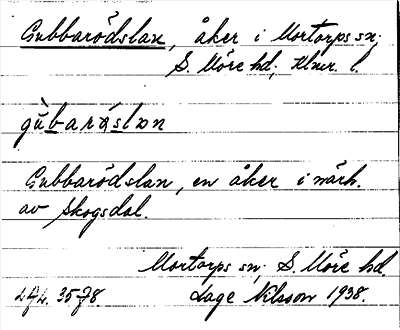 Gubbarödslan, åker i Mortorps sn;
S. Möre hd; Klmr. l.
gùbaráslan
Gubbarödslan, en åker i närh.
av Skogsdal.
Mortorps sn; S. Möre hd.
Lage Nilsson 1938.